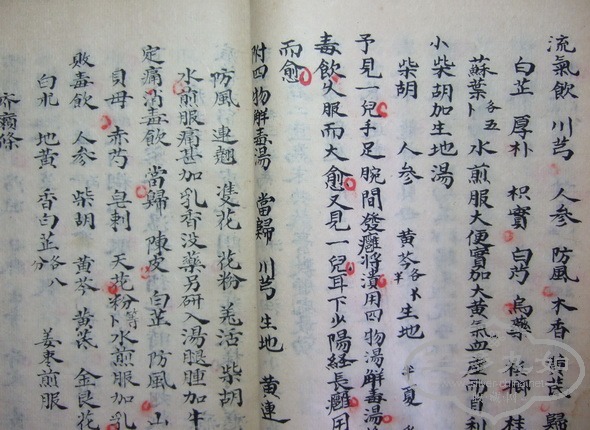 流氣飲 川芎 人參 防風 木香 黃芪 歸
白芷 厚朴 枳實 白芍 烏藥 梹榔 桂
蘇葉 各五卜 水煎服大便實加大黃氣血
小柴胡加生地湯
柴胡 人參 黃芩各半 生地 半夏
予見一兒手足腕間發癰將潰用四物湯解毒湯
毒飲久服而大愈又見一兒耳下少陽経長癰用
而愈
附四物解毒湯 當歸 川芎 生地 黃連
防風 連翹 雙花 花粉 羌活 柴胡
水煎服痛甚加乳香没藥另研入湯眼腫加牛
定痛消毒飲 當歸 陳皮 白芷 防風 山
貝母 赤芍 皂刺 天花粉卜等水煎服加乳
敗毒飲 人參 柴胡 黃芩 黃芪 金良花
白朮 地黃 香白芷各八分 姜枣煎服